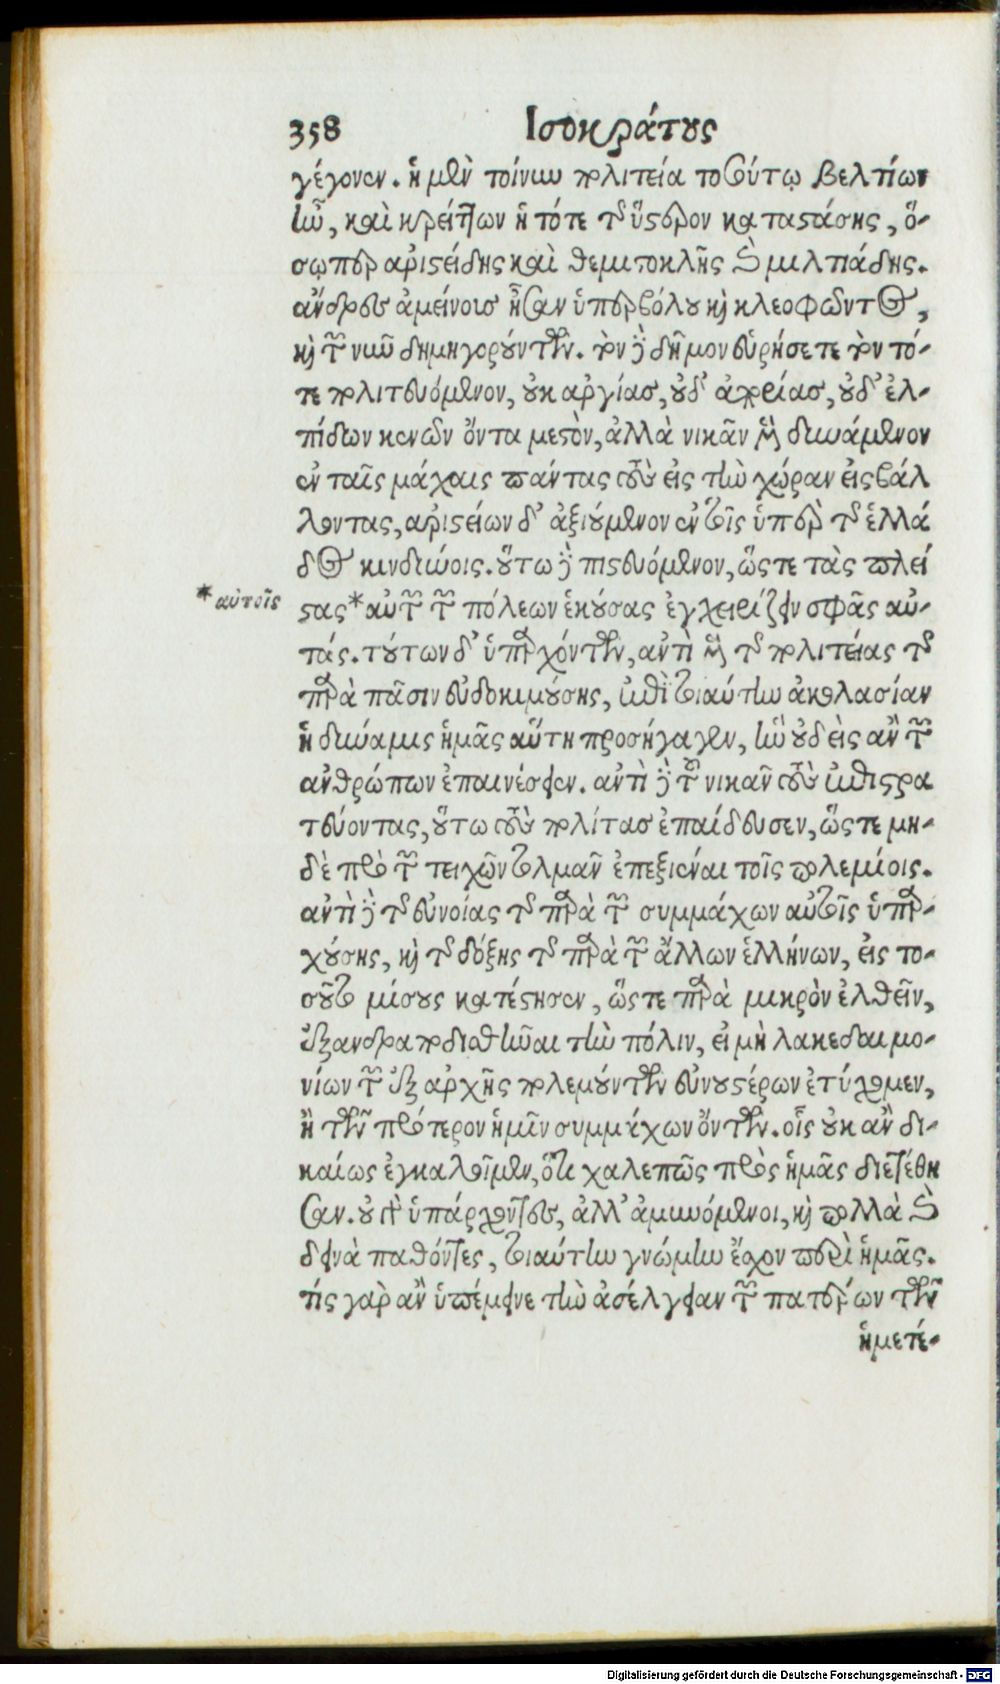 358 Ισοκράτους
γέγονεν. ἡ μὲν τοίνυν πολιτεία τοσούτῳ βελτίων
ἦν, καὶ κρείττων ἡ τότε τῆς ὕστερον καταστάσης, ὅ-
σῳπερ ἀριστείδης καὶ θεμιστοκλῆς καὶ μιλτιάδης.
ἄνδρες ἀμείνους ἦσαν ὑπερβόλου καὶ κλεοφῶντος,
καὶ τῶν νῦν δημηγορούντων. τὸν δὲ δῆμον εὑρήσετε τὸν τό-
τε πολιτευόμενον, οὐκ ἀργίας, οὐδ' ἀπορίας, οὐδ' ἐλ-
πίδων κενῶν ὄντα μεστὸν, ἀλλὰ νικᾶν μὲν δυνάμενον
ἐν ταῖς μάχαις πάντας τοὺς εἰς τὴν χώραν εἰσβάλ
λοντας, ἀριστείων δ' ἀξιούμενον ἐν τοῖς ὑπὲρ τῆς ἑλλά
δος κινδύνοις. οὕτω δὲ πιστευόμενον, ὥστε τὰς πλεί
στας*αὐτῶν τῶν πόλεων ἑκούσας ἐγχειρίζειν σφᾶς αὐ-
*αὐτοῖς
τάς. τούτων δ' ὑπαρχόντων, ἀντὶ μὲν τῆς πολιτείας τῆς
παρὰ πᾶσιν εὐδοκιμούσης, ἐπὶ τοιαύτην ἀκολασίαν
ἡ δύναμις ἡμᾶς αὕτη προσήγαγεν, ἣν οὐδεὶς ἂν τῶν
ἀνθρώπων ἐπαινέσειεν. ἀντὶ δὲ τοῦ νικᾶν τοὺς ἐπιστρα
τεύοντας, οὕτω τοὺς πολίτας ἐπαίδευσεν, ὥστε μη-
δὲ πρὸ τῶν τειχῶν τολμᾶν ἐπεξιέναι τοῖς πολεμίοις.
ἀντὶ δὲ τῆς εὐνοίας τῆς παρὰ τῶν συμμάχων αὐτοῖς ὑπαρ-
χούσης, καὶ τῆς δόξης τῆς παρὰ τῶν ἄλλων ἑλλήνων, εἰς το-
σοῦτο μίσους κατέστησεν, ὥστε παρὰ μικρὸν ἐλθεῖν,
ἐξανδραποδισθῆναι τὴν πόλιν, εἰ μὴ λακεδαιμο-
νίων τῶν ἐξ ἀρχῆς πολεμούντων εὐνουστέρων ἐτύχομεν,
ἢ τῶν πρότερον ἡμῖν συμμάχων ὄντων. οἷς οὐκ ἂν δι-
καίως ἐγκαλοῖμεν, ὅτι χαλεπῶς πρὸς ἡμᾶς διετέθη
σαν. οὐ γὰρ ὑπάρχοντες, ἀλλ' ἀμυνόμενοι, καὶ πολλὰ καὶ
δεινὰ παθόντες, τοιαύτην γνώμην ἔχον περὶ ἡμᾶς.
τίς γὰρ ἂν ὑπέμεινε τὴν ἀσέλγειαν τῶν πατέρων τῶν
ἡμετέ-
Digitalisierung gefördert durch die Deutsche Forschungsgemeinschaft - DFG